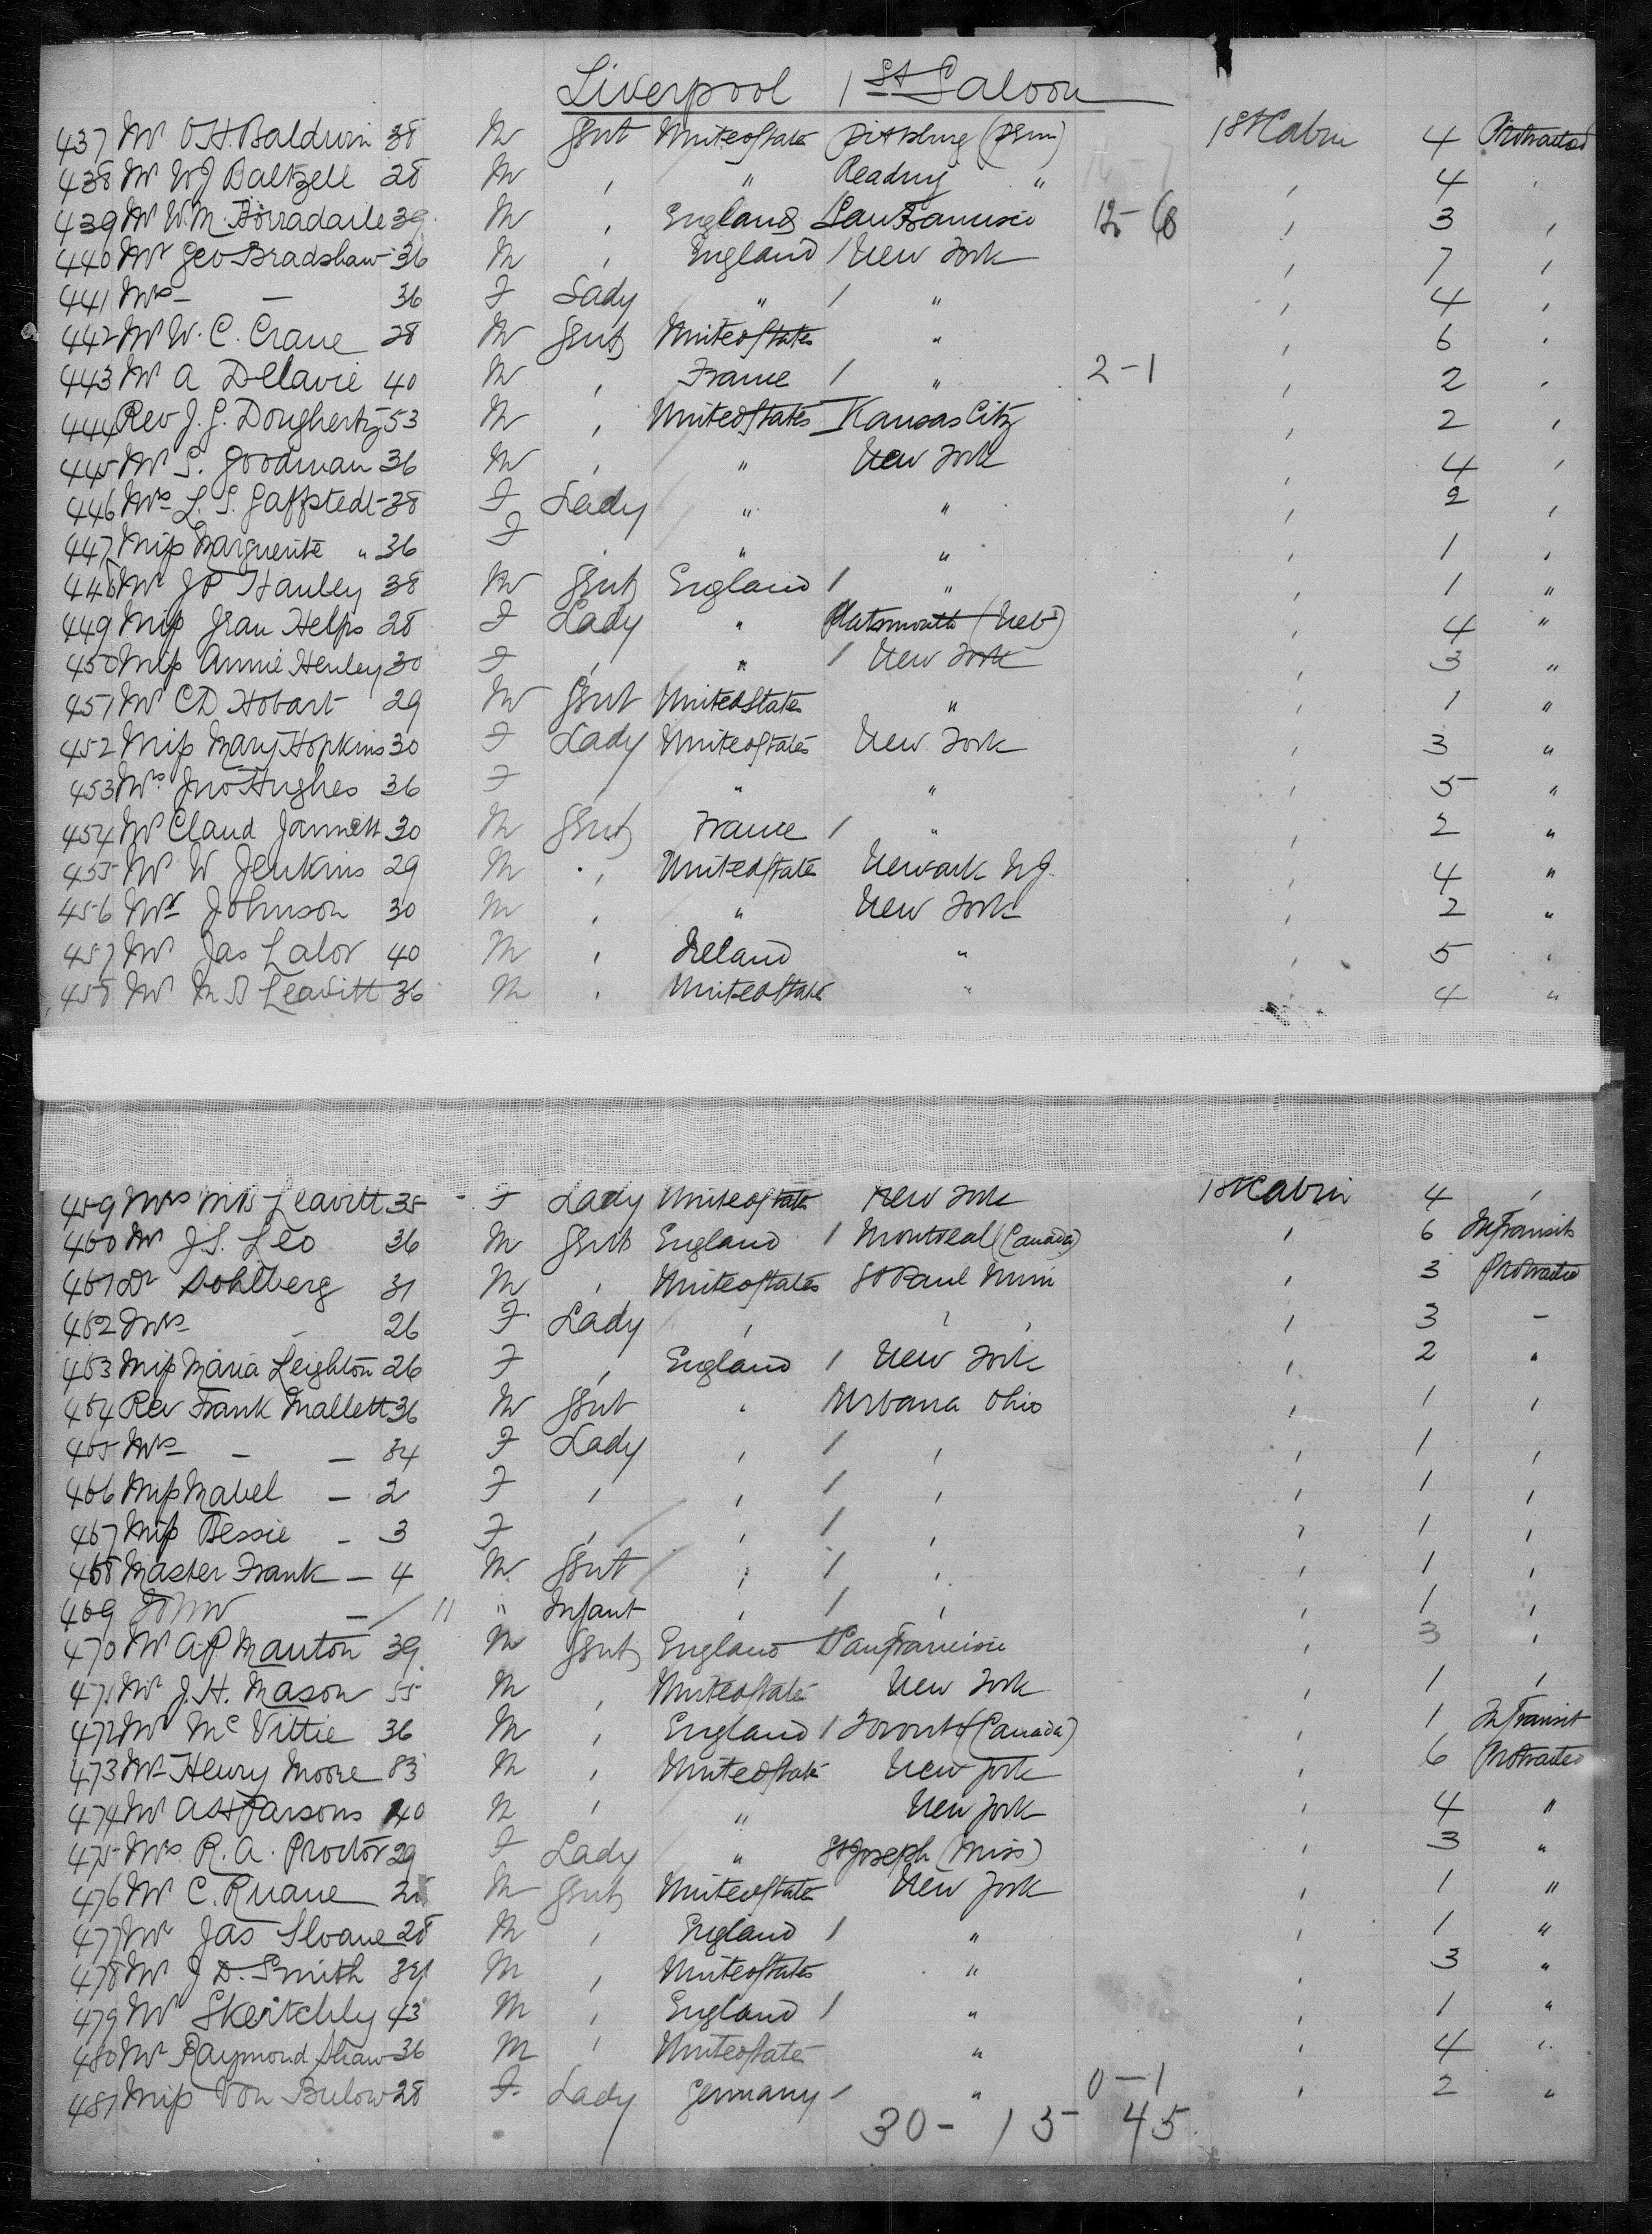 Liverpool 1st Saloon
437 Mr O.H. Baldwin 38 M Gent United State Pittsburg (Penn) 1st Cabin 4 Protracted
438 Mr W J Baltzell 28 M , " Reading " , 4 ,
439 Mr W.M. Borradaile 39 M , England San Francisco , 3 ,
440 Mr Geo Bradshaw 36 M , England / New York , 7 ,
441 Mrs - - 36 F Lady " / " , 4 ,
442 Mr W. C. Crane 28 M Gent United States " , 6 ,
443 Mr A Delavie 40 M , France / " 2-1 , 2 ,
444 Rev J. G. Dougherty 53 M , United States Kansas City , 2 ,
445 Mr S. Goodman 36 M , " New York , 4 ,
446 Mrs L. S. 38 F Lady " " , 2 ,
447 Miss Marguerite " 36 F , " " , 1 ,
448 Mr J P Hanley 38 M Gent England / " , 1 "
449 Miss Jean Helps 28 F Lady " Platsmouth (Neb) , 4 "
450 Miss Annie Henley 30 F , " / New York , 3 "
451 Mr C D Hobart 29 M Gent United States " , 1 "
452 Miss Mary Hopkins 30 F Lady United States New York , 3 "
453 Mrs Jno Hughes 36 F , " " , 5 "
454 Mr Claud Jannett 30 M Gent France / " , 2 "
455 Mr W Jenkins 29 M , United State Newark N.J. , 4 "
456 Mr Johnson 30 M , " New York , 2 "
457 Mr Jas Lalor 40 M , Ireland " , 5 ,
458 Mr M B Leavitt 36 M , United State " , 4 "
459 Mrs M B Leavitt 35 F Lady United State New York 1st Cabin 4 ,
460 Mr J.S. Leo 36 M Gent England / Montreal (Canada) , 6 In Transit
461 Dr Dohlberg 31 M , United States St Paul Minn , 3 Protracted
462 Mrs - 26 F Lady , , , , 3 -
463 Miss Maria Leighton 26 F , England / New York , 2 "
464 Rev Frank Mallett 36 M Gent , Urbana Ohio , 1 ,
465 Mrs - - 34 F Lady , / , , 1 ,
466 Miss Mabel - 2 F , , / , , 1 ,
467 Miss Bessie - 3 F , , / , , 1 ,
468 Master Frank - 4 M Gent , / , , 1 ,
469 John - / 11 " Infant , / , , 1 ,
470 Mr A.P. Manton 39 M Gent England San Francisco , 3 ,
471 Mr J.H. Mason 55 M , United State New York , 1 ,
472 Mr Mc Vittie 36 M , England / Toronto (Canada) , 1 In Transit
473 Mr Henry Moore 83 M , United State New York , 6 Protracted
474 Mr A H Parsons 40 M , " New York , 4 "
475 Mrs R. A. Proctor 29 F Lady " St Joseph (Miss) , 3 "
476 Mr C. Ruane M Gent United State New York , 1 "
477 Mr Jas Sloane 28 M , England / " , 1 "
478 Mr J D. Smith M , United States " , 3 "
479 Mr Sketchly 43 M , England / " , 1 "
480 Mr Raymond Shaw 36 M , United State " , 4 "
481 Miss Von Bulow 28 F Lady Germany / " 0-1 , 2 "
30 - 15 45